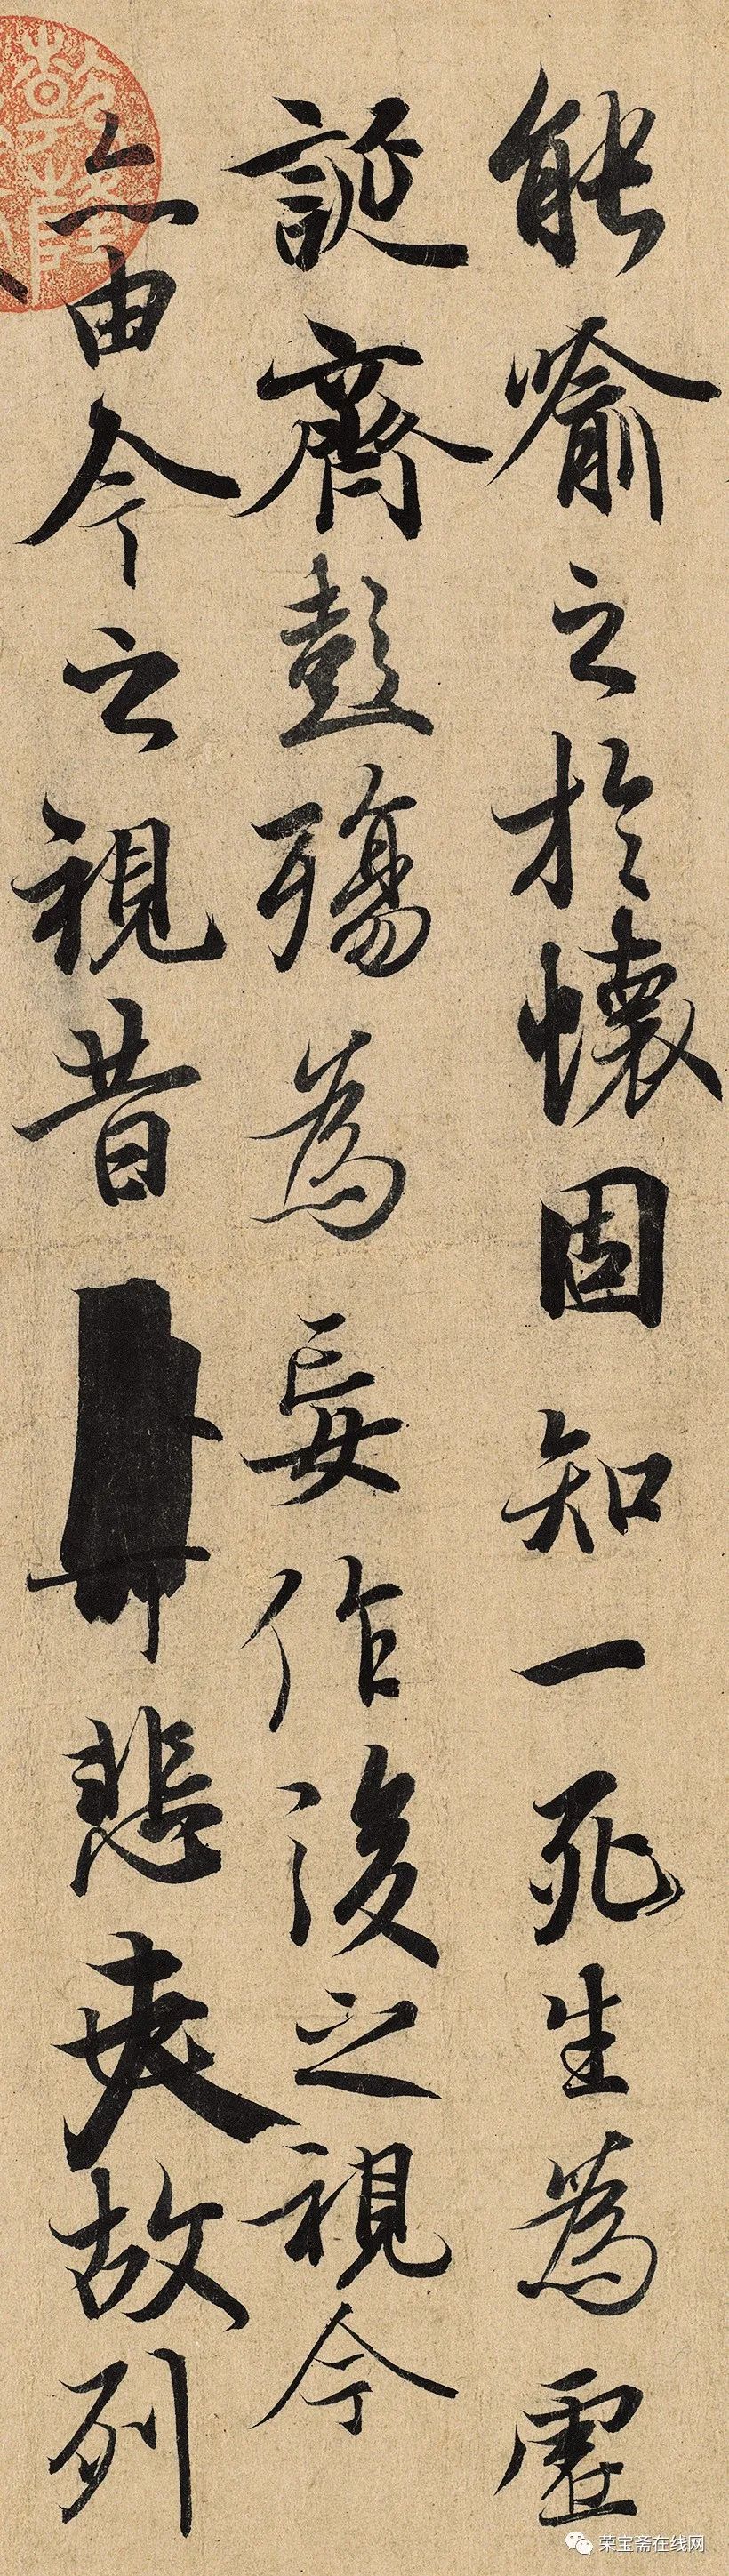 能喻之於懷固知一死生為虛
誕齊彭殤為妄作後之視今
亦由今之視昔悲夫故列
荣宝斋在线网